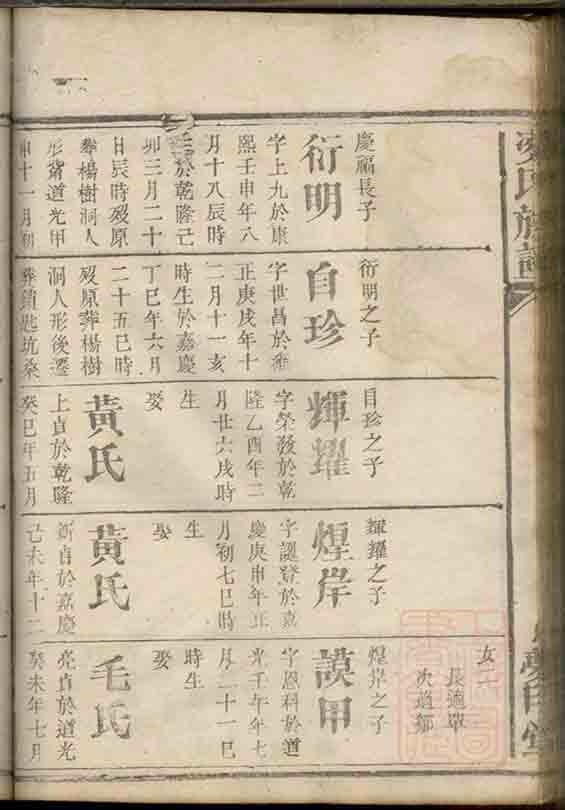 慶福長子
衍明
字上九於康
熙壬申年八
月十八辰時
於乾隆己
卯三月二十
日辰時歿原
葬楊樹洞人
形背道光甲
申十一月初
衍明之子
自珍
字世昌於雍
正庚戌年十
二月十一亥
時生於嘉慶
丁巳年六月
二十五巳時
歿原葬楊樹
洞人形後遷
葬鎖匙坑桑
自珍之子
輝耀
字榮發於乾
隆乙酉年二
月廿六戌時
生
娶
黃氏
上貞於乾隆
癸巳年五月
輝耀之子
煌岸
字誕登於嘉
慶庚申年正
月初七巳時
生
娶
黃氏
新貞於嘉慶
己未年十二
女二
長適單
次適鄒
煌岸之子
謨甲
字恩科於道
光壬午年七
月二十一巳
時生
娶
毛氏
亮貞於道光
癸未年七月
氏族譜